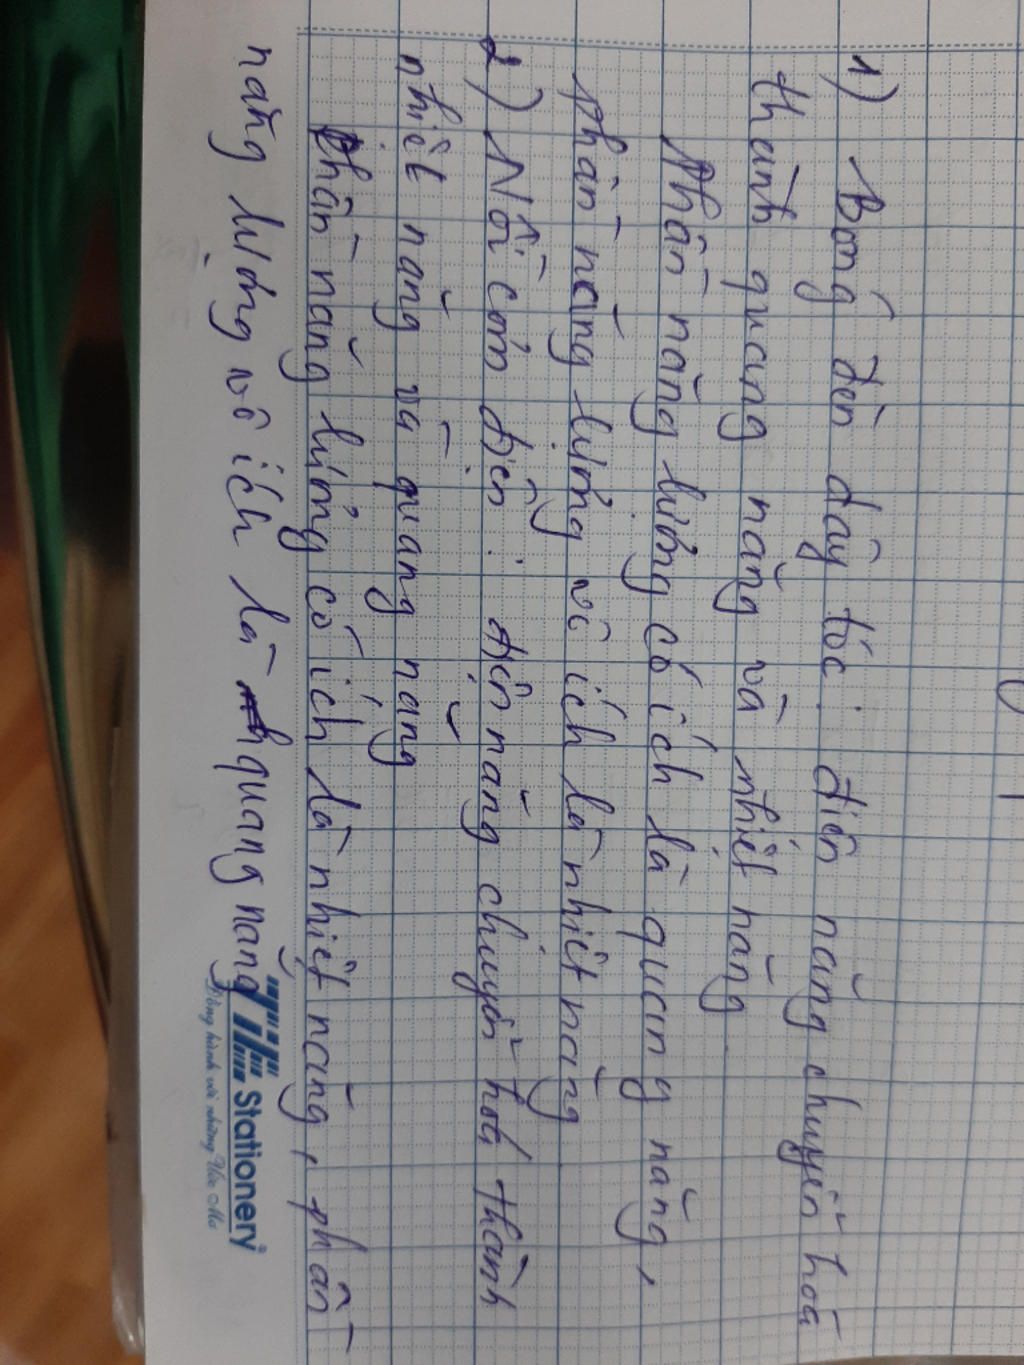 1) Bóng đèn dây tóc: điện năng chuyển hoá
thành quang năng và nhiệt năng
Phần năng lượng có ích là quang năng,
phần năng lượng vô ích là nhiệt năng
2) Nồi cơm điện: điện năng chuyển hoá thành
nhiệt năng và quang năng
Phần năng lượng có ích là nhiệt năng, phần
năng lượng vô ích là quang năng
TL Stationery
Đồng hành với những Ước Mơ